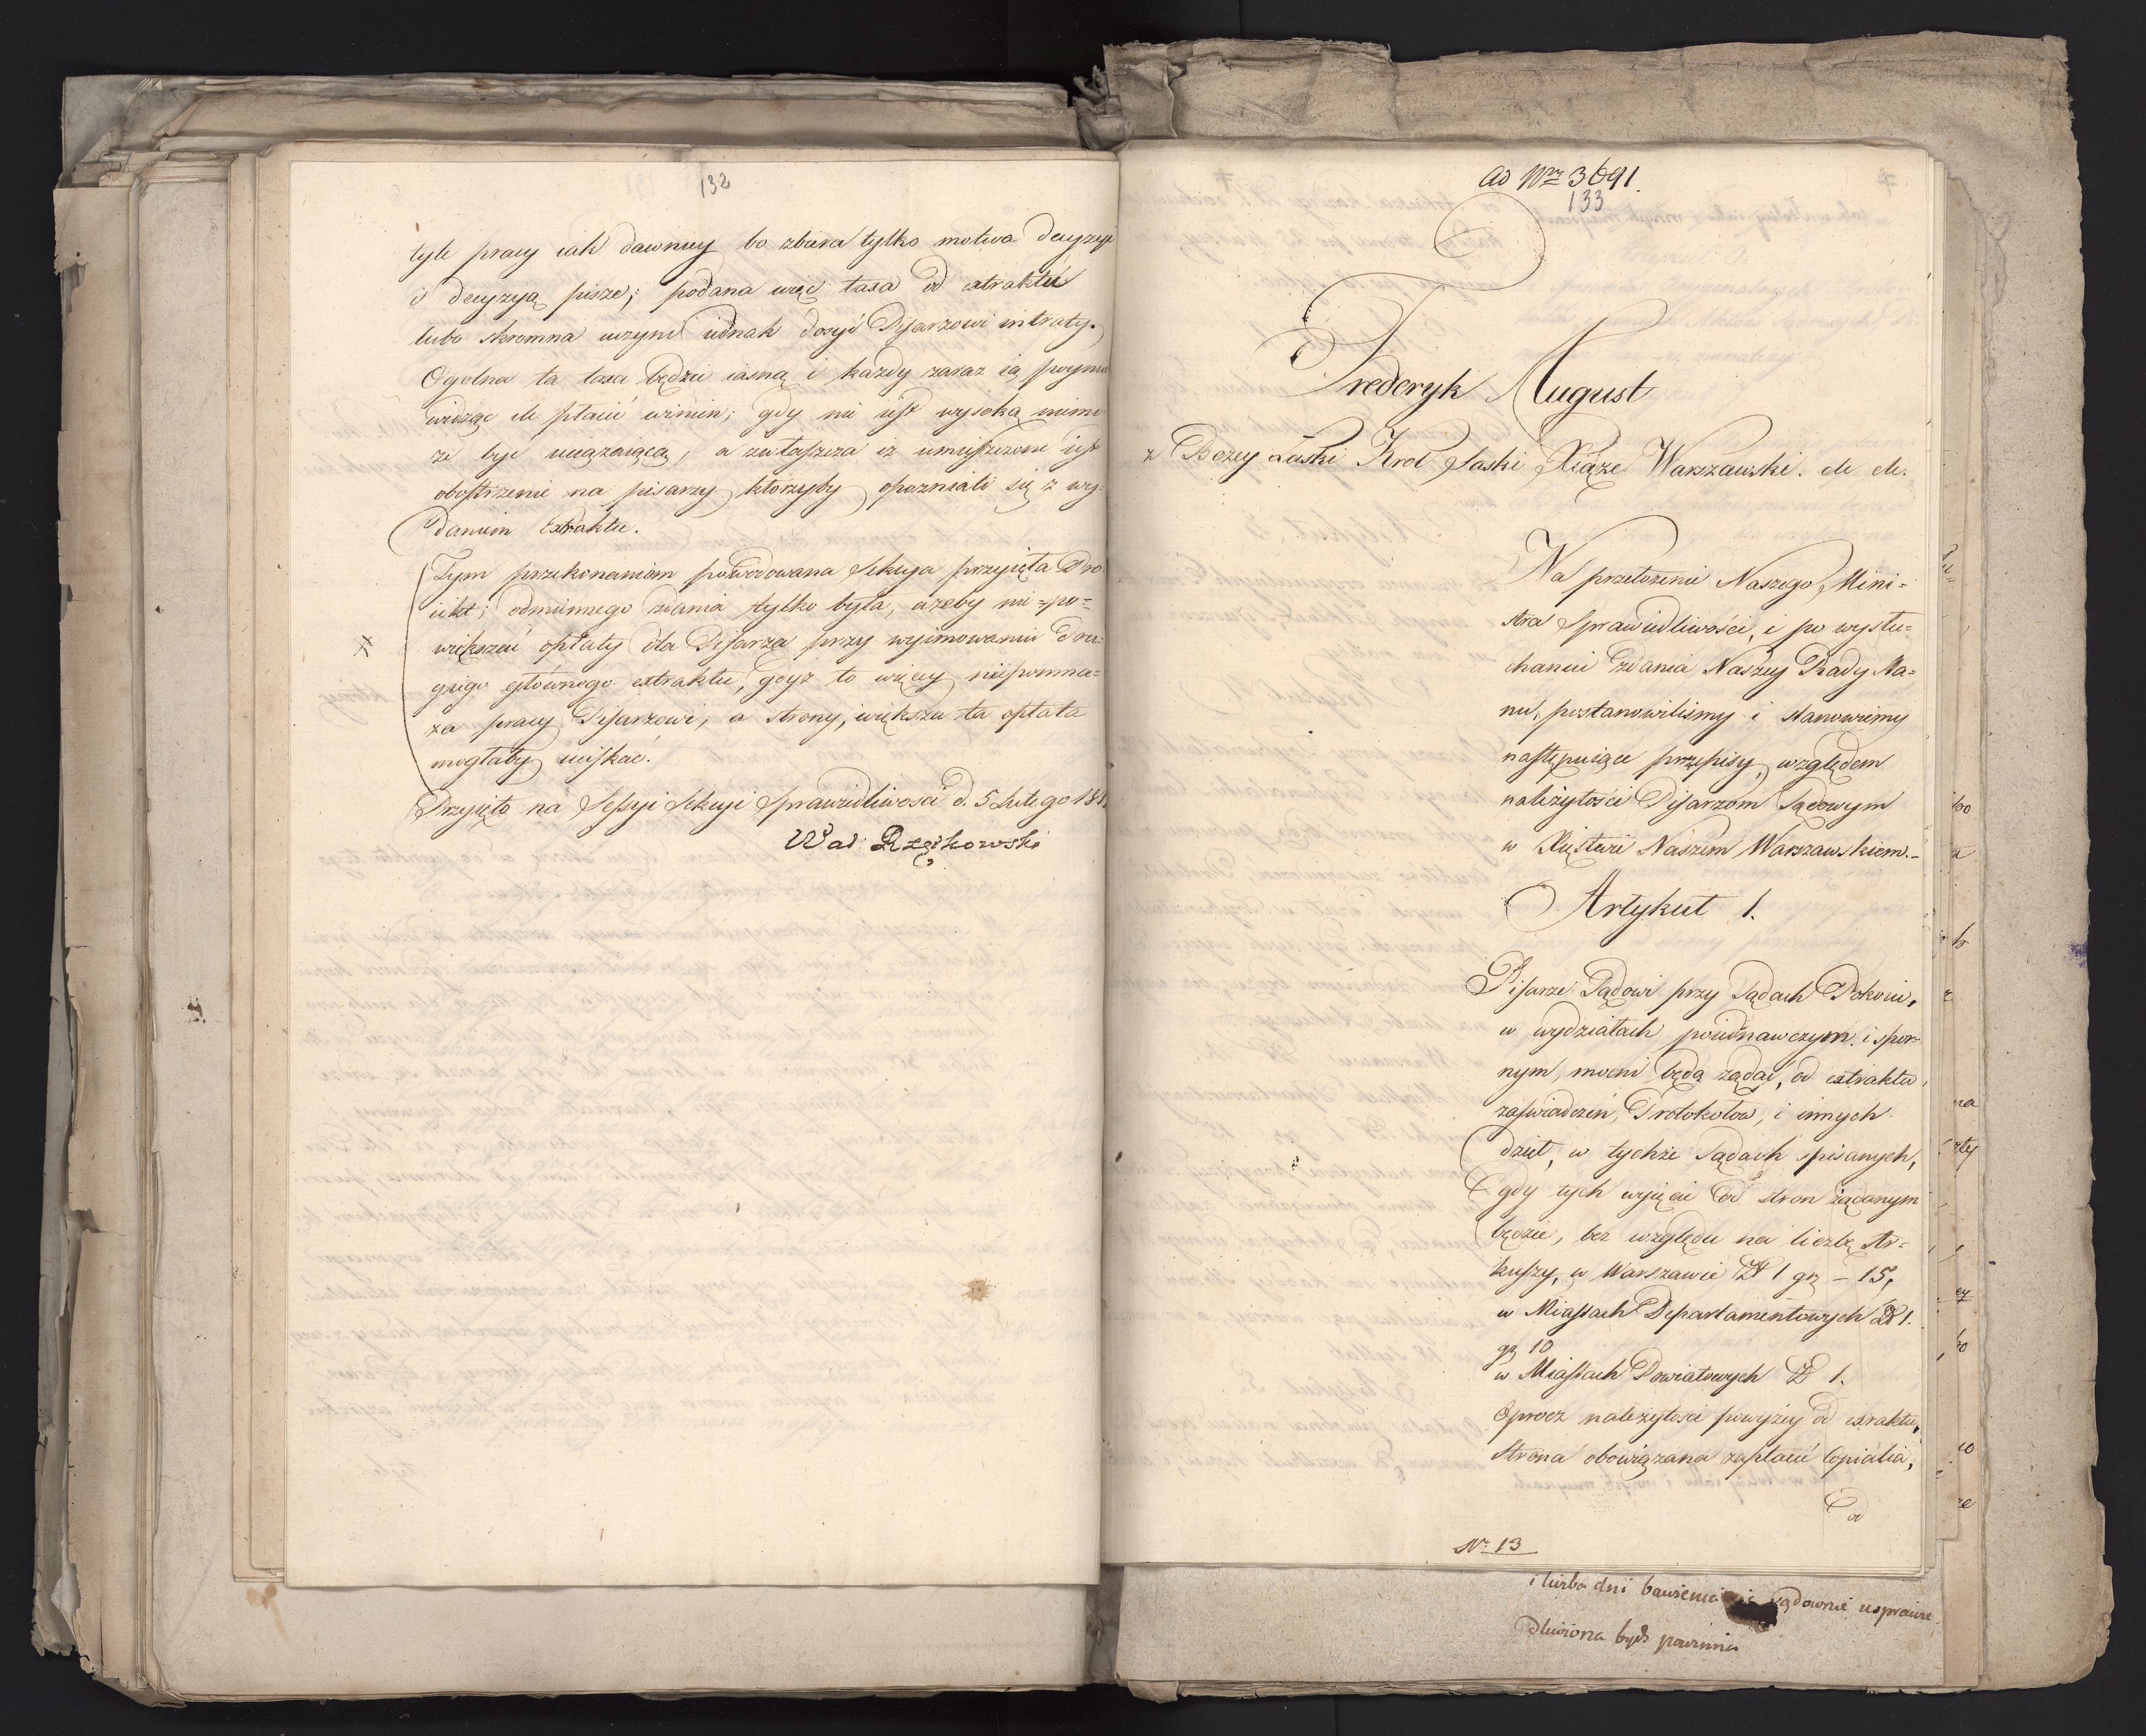 132
tyle pracy iak dawniey bo zbiera tylko motiva decyzyi
i decyzyą pisze; podana więc taxa od extraktu
lubo skromna uczyni iednak dosyć Pisarzowi intraty.
Ogolna ta taxa będzie iasną i kazdy zaraz ią poymie
widząc ile płacić winien; gdy nie iest wysoką niemo
ze bydź uciązaiącą, a zwłaszcza iz umieszczone iest
obostrzenie na pisarzy ktorzyby opozniali się z wy-
daniem Extraktu.
Tym przekonaniem powodowana Sekcya przyięła Pro
iekt; odmiennego zdania tylko była, azeby nie =po=
większać opłaty dla Pisarza przy wyimowaniu dru-
giego głównego extraktu, gdyz to więcey niepomna=
za pracy Pisarzowi, a strony, większa ta opłata
mogłaby uciskać.
Przyięto na Sessyi Sekcyi Sprawiedliwosci d. 5 Lutego 181
Wal: Rzętkowski
ad Nrm 3691.
133
Frederyk August
z Bozey Łaski Krol Saski Xiąze Warszawski. etc etc.
Na przełozenie Naszego Mini=
stra Sprawiedliwości, i po wysłu=
chaniu zdania Naszey Rady Sta=
nu, postanowilismy i stanowiemy
następuiące przepisy, względem
należytości Pisarzom Sądowym
w Xięstwie Naszem Warszawskiem.-
Artykuł 1.
Pisarze Sądowi przy Sądach Pokoiu,
w wydziałach poiednawczym i spor=
nym, mocni będą ządać, od extraktu,
zaswiadczeń, Protokołow, i innych
dzieł, w tychże Sądach spisanych,
gdy tych wyięcie od stron żądanym
będzie, bez względu na liczbę Ar=
kuszy, w Warszawie Zł 1 gr – 15,
w Miastach Departamentowych Zł 1.
gr 10
w Miastach Powiatowych Zł 1.
Oprocz należytosci powyżey od extraktu,
Strona obowiązana zapłacić Copialia,
od
Nr. 13
i liczba dni bawienia sądownie usprawie
dliwiona bydź powinna